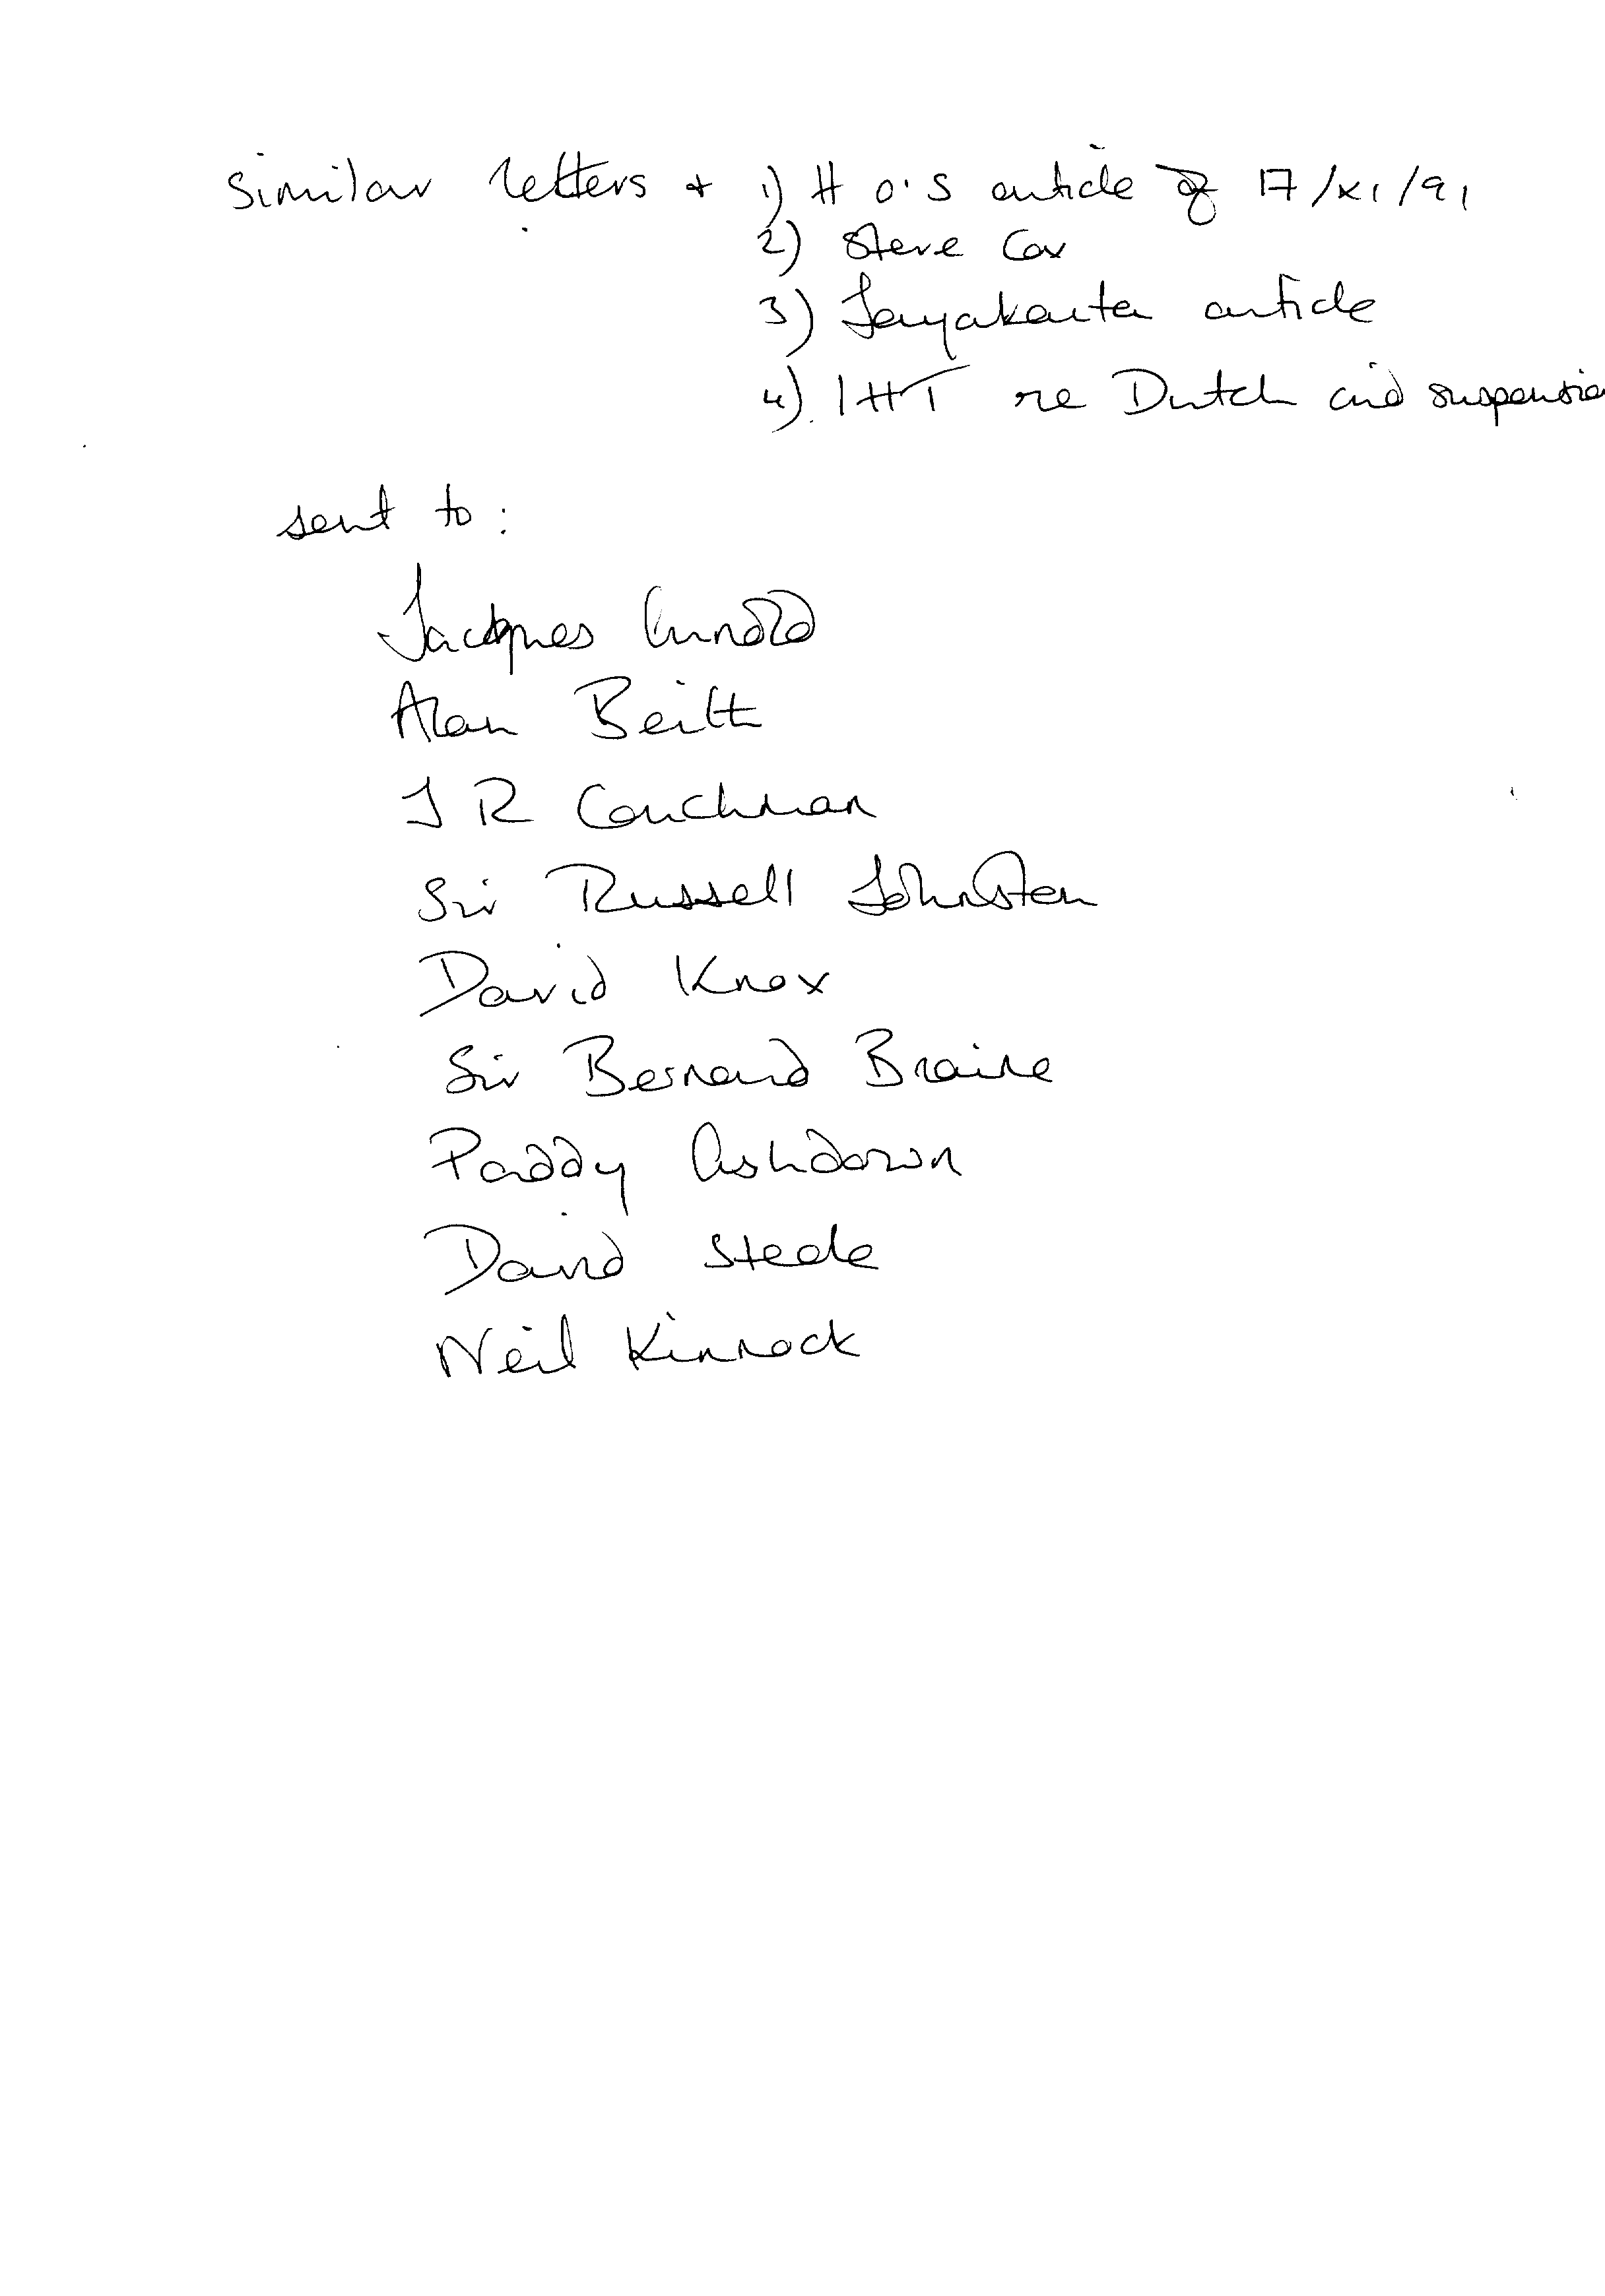 Similar letters + 1) H O'S article of 17/XI/91
2) Steve Cox
3) Jayakarta article
4) IHT re Dutch aid suspension
sent to:
Jacques Arnold
Alan Beith
J R Couchman
Sir Russell Johnston
David Knox
Sir Bernard Braine
Paddy Ashdown
David Steele
Neil Kinnock